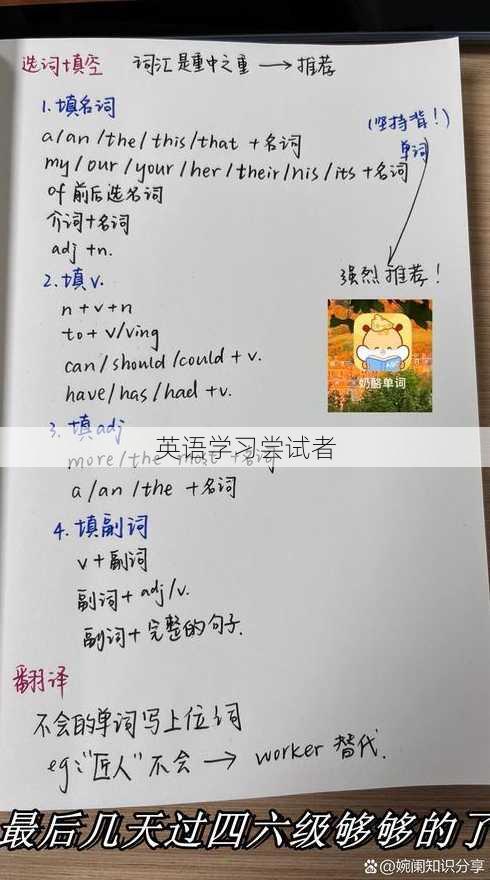 选词填空 词汇是重中之重 → 推荐
1. 填名词
(坚持背!)
单词
a/an/the/this/that +名词
my/our/your/her/their/his/its +名词
of 前后选名词
介词+名词
adj +n.
2. 填v.
强烈推荐!
n+v+n
to+ v/ving
can/should/could + v.
have/has/had +v.
奶酪单词
3. 填adj
英语学习尝试者
more/the most +名词
a/an/the +名词
4. 填副词
v+副词
副词+adj/v.
副词+完整的句子.
翻译
不会的单词写上位词
eg:“匠人”不会 → worker 替代.
最后几天过四六级够够的了
@婉阑知识分享